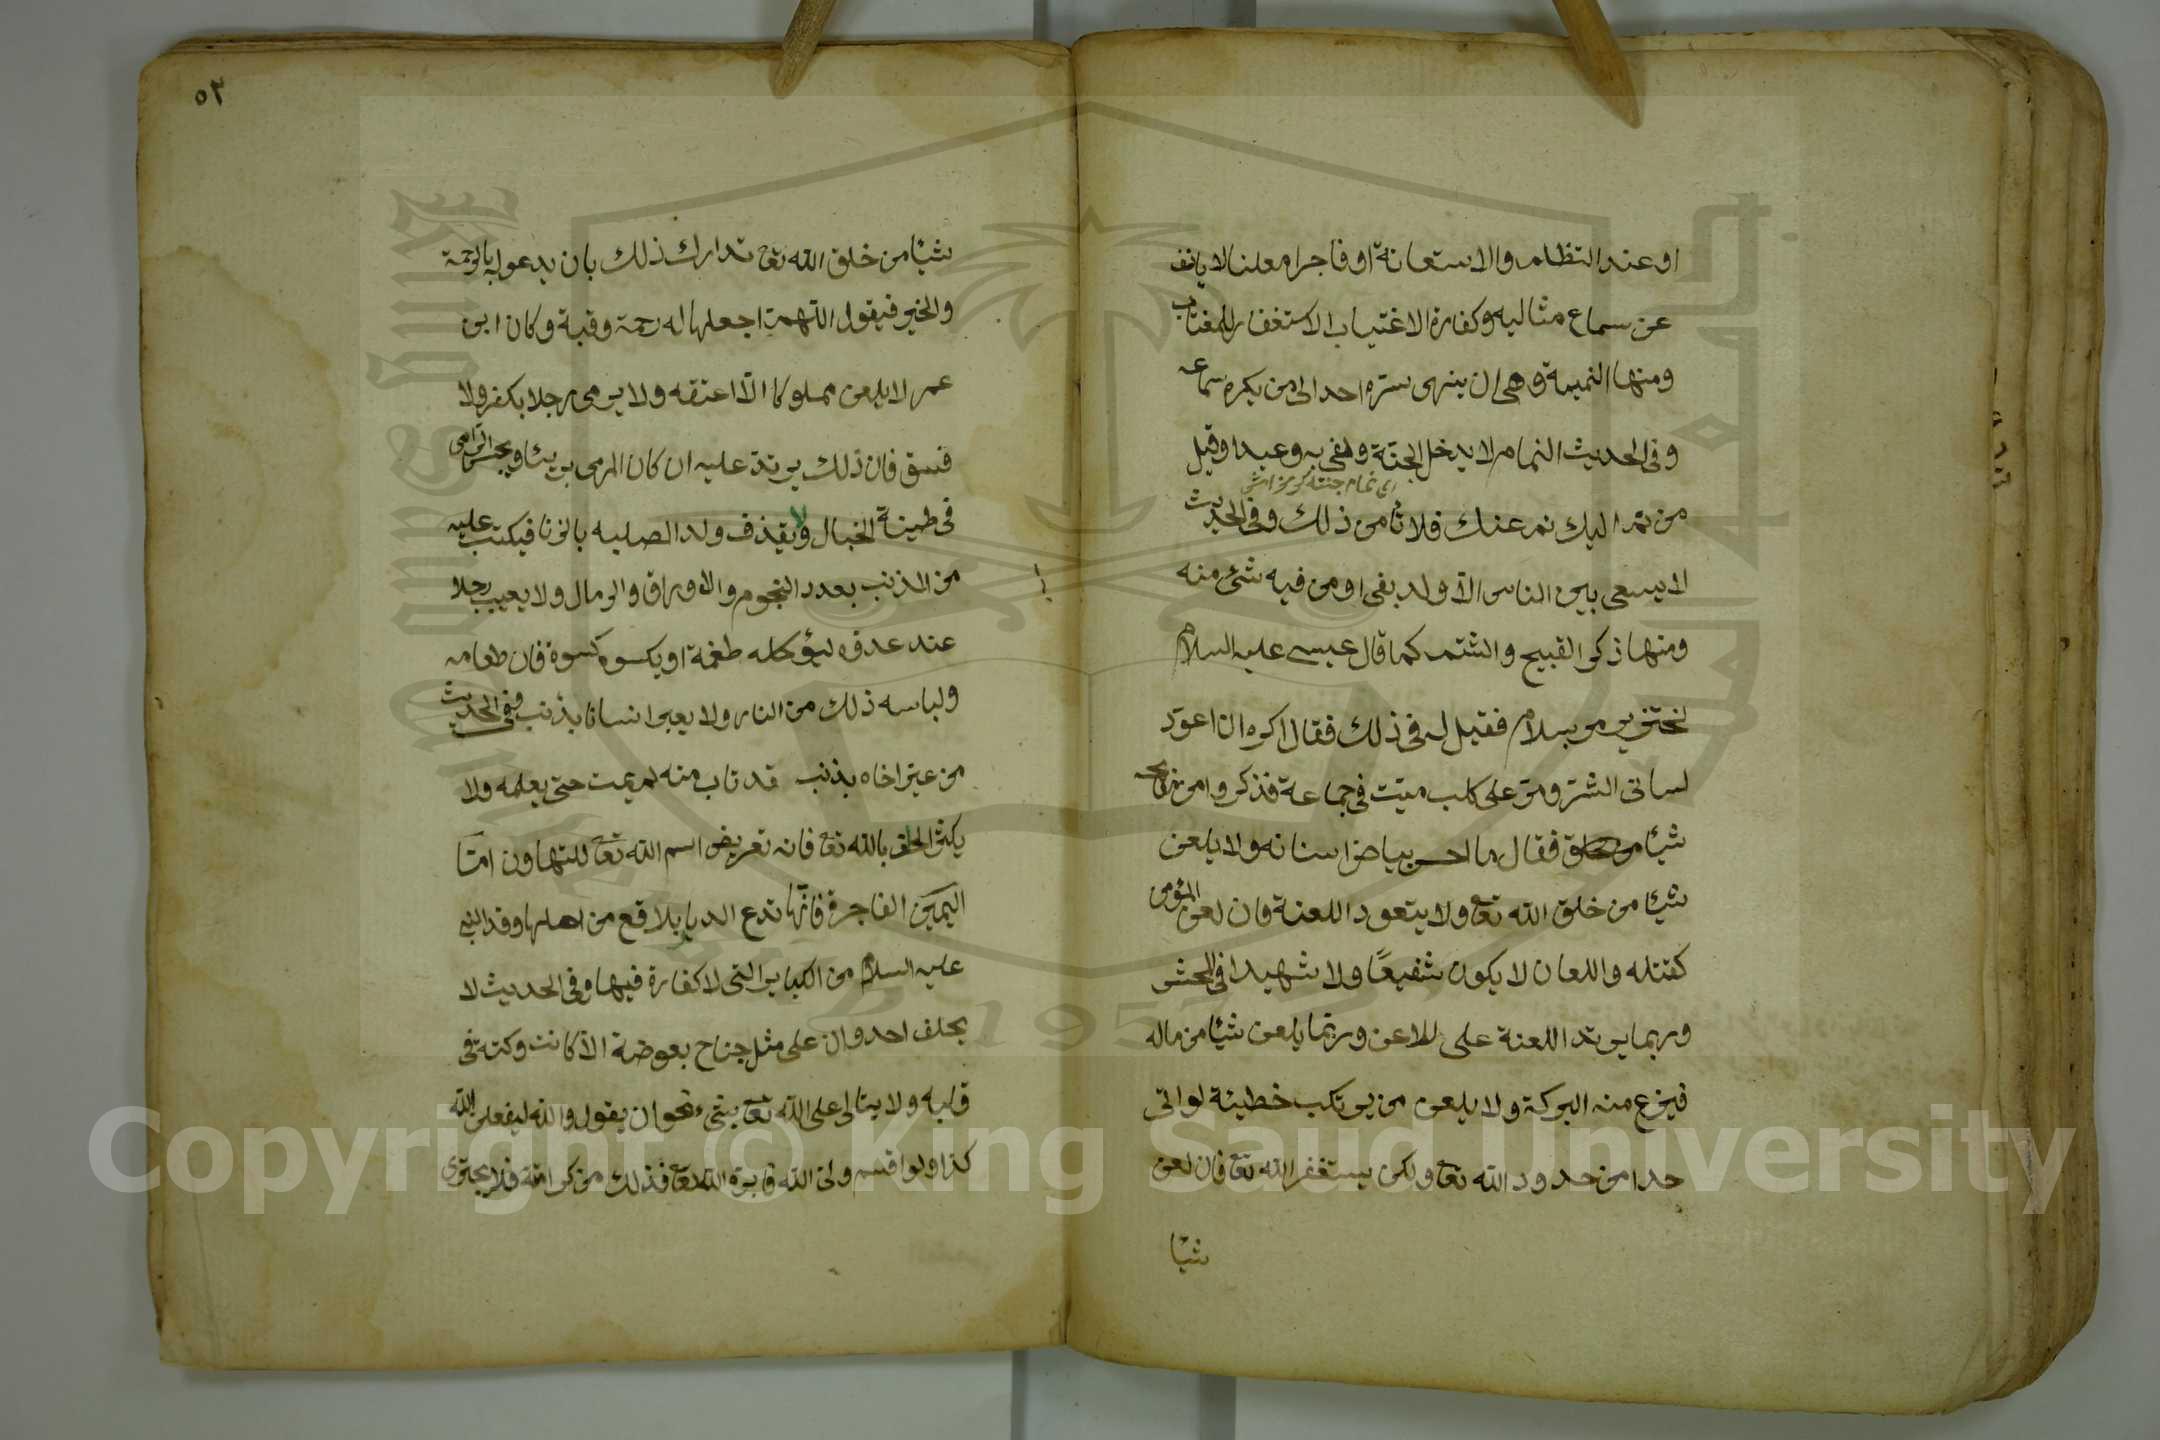 او عند التظلم والاستعانة او فاجرا معلنا لا يانف
عن سماع مثالبه وكفارة الاغتياب الاستغفار للمغتاب
ومنها النميمة وهى ان ينهى ستره احدا الى من يكره سماعه
وفى الحديث النمام لا يدخل الجنة وكفى به وعيدا وقيل
اى نمام جنته كرمز امش
من نم اليك نم عنك فلا تأمن ذلك وفى الحديث
لا يسعى بين الناس الا ولد بغى او من فيه شئ منه
ومنها ذكر القبيح والشتم كما قال عيسى عليه السلام
لخنزير مر بسلام فقيل له فى ذلك فقال اكره ان اعود
لسانى الشر ومر على كلب ميت فى جماعة فذكروا من ريحه
شيئا فقال ما احسن بياض اسنانه ولا يلعن
شيئا من خلق الله تع ولا يتعود اللعنة فان لعن المؤمن
كقتله واللعان لا يكون شفيعًا ولا شهيدا فى الحشر
وربما يرتد اللعنة على اللاعن وربما يلعن شيئا من ماله
فينزع منه البركة ولا يلعن من يرتكب خطيئة لو اتى
حدا من حدود الله تع ولكن يستغفر الله تع فان لعن
شيئا
٥٢
شيئا من خلق الله تع تدارك ذلك بان يدعو له بالرحمة
والخير فيقول اللهم اجعلها له رحمة وقربة وكان ابن
عمر لا يلعن مملوكا الّا اعتقه ولا يرمى رجلا بكفر ولا
فسق فان ذلك يرتد عليه ان كان المرمى بريئا ويحبس الرامى
فى طينة الخبال ولا يقذف ولد الصلبه بالزنا فيكتب عليه
من الذنب بعدد النجوم والاوراق والرمال ولا يعيب رجلا
عند عدوه ليؤكله طعمة او يكسوه كسوة فان طعامه
ولباسه ذلك من النار ولا يعير انسانا بذنب ففى الحديث
من عير اخاه بذنب قد تاب منه لم يمت حتى يعلمه ولا
يكثر الحلف بالله تع فانه تعريض اسم الله تع للتهاون امّا
اليمين الفاجرة فانّها تدع الديار بلاقع من اهلها وقد
عليه السلام من الكباير التى لا كفارة فيها وفى الحديث لا
يحلف احد وان على مثل جناح بعوضة الا كانت وكتة فى
قلبه ولا يتالى على الله تع بشئ نحو ان يقول والله ليفعلن الله
كذا ولو اقسم ولى الله فابره الله تع فذلك من كرامته فلا يجترى